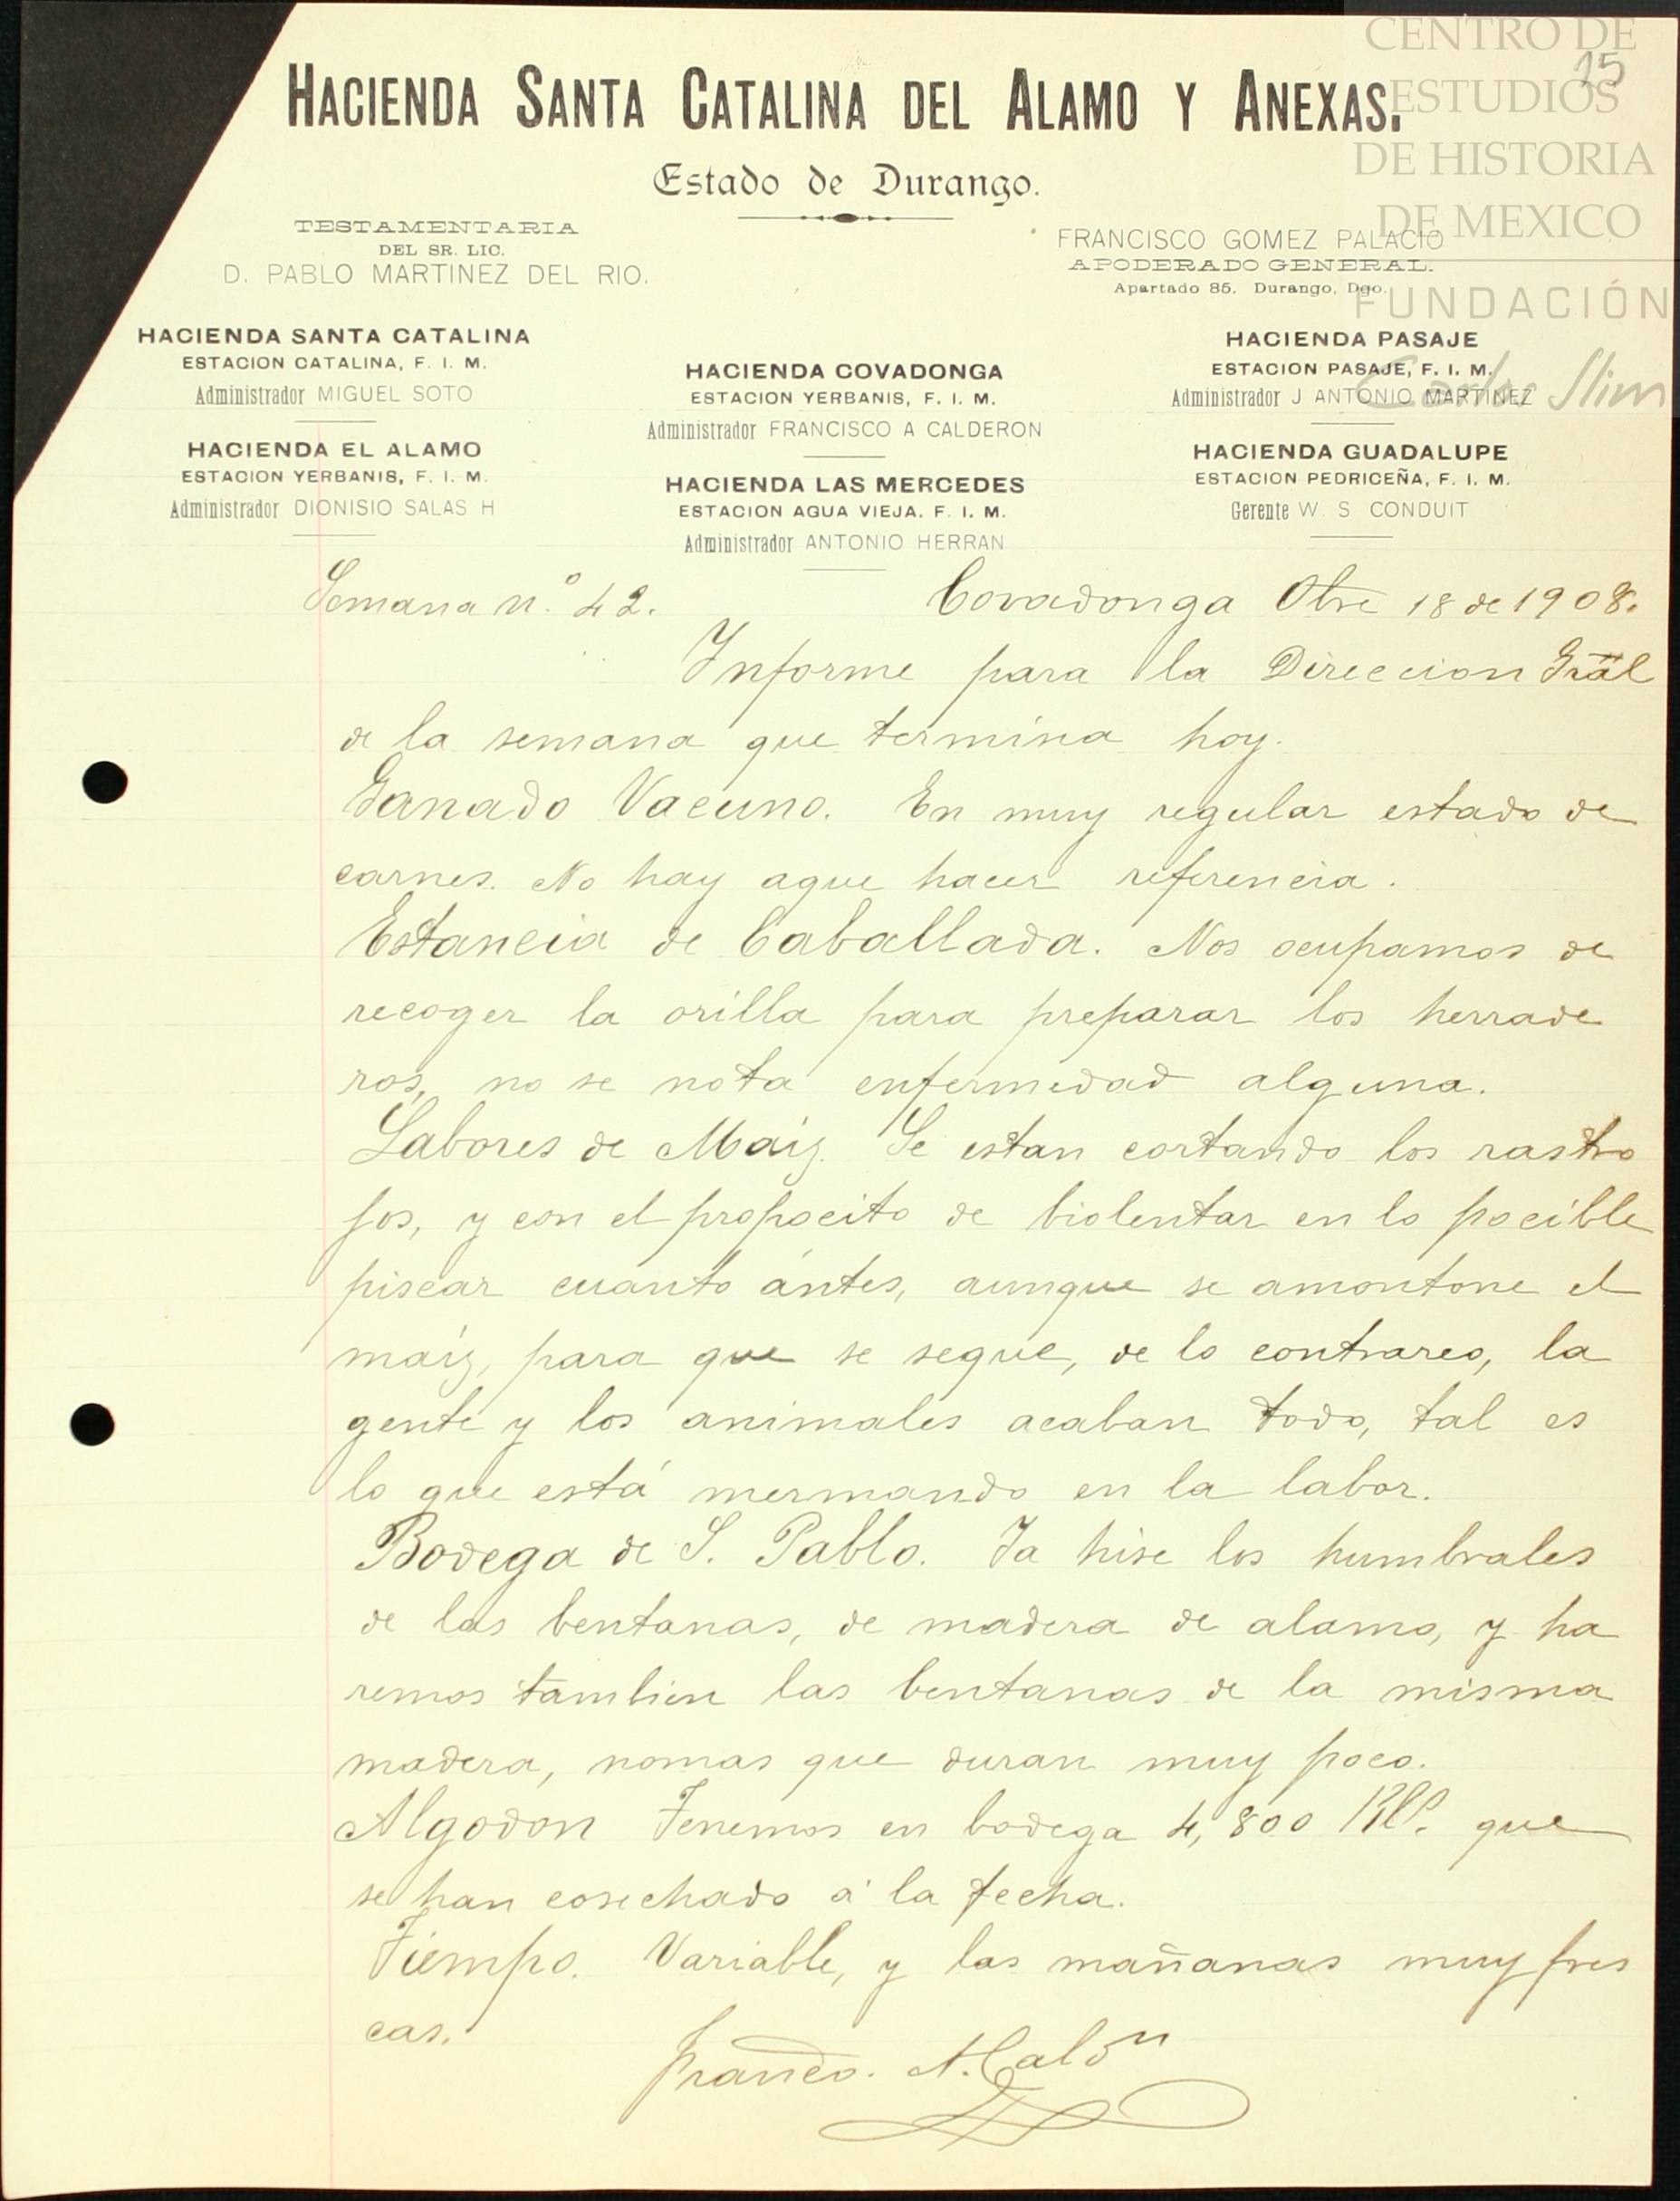 CENTRO DE
ESTUDIOS
DE HISTORIA
DE MEXICO
FUNDACIÓN
Carlos Slim
15
HACIENDA SANTA CATALINA DEL ALAMO Y ANEXAS.
Estado de Durango.
TESTAMENTARIA
DEL SR. LIC.
D. PABLO MARTINEZ DEL RIO.
FRANCISCO GOMEZ PALACIO
APODERADO GENERAL.
Apartado 85. Durango, Dgo.
HACIENDA SANTA CATALINA
ESTACION CATALINA, F. I. M.
Administrador MIGUEL SOTO
HACIENDA EL ALAMO
ESTACION YERBANIS, F. I. M.
Administrador DIONISIO SALAS H
HACIENDA COVADONGA
ESTACION YERBANIS, F. I. M.
Administrador FRANCISCO A CALDERON
HACIENDA LAS MERCEDES
ESTACION AGUA VIEJA. F. I. M.
Administrador ANTONIO HERRAN
HACIENDA PASAJE
ESTACION PASAJE, F. I. M.
Administrador J ANTONIO MARTINEZ
HACIENDA GUADALUPE
ESTACION PEDRICEÑA, F. I. M.
Gerente W. S CONDUIT
Semana n.º 42. Covadonga Obre 18 de 1908.
Informe para la Direccion Gral
de la semana que termina hoy.
Ganado Vacuno. En muy regular estado de
carnes. No hay aque hacer referencia.
Estancia de Caballada. Nos ocupamos de
recoger la orilla para preparar los herrade
ros, no se nota enfermedad alguna.
Labores de Maiz. Se estan cortando los rastro
jos, y con el propocito de biolentar en lo pocible
piscar cuanto ántes, aunque se amontone el
maiz, para que se seque, de lo contrareo, la
gente y los animales acaban todo, tal es
lo que está mermando en la labor.
Bodega de S. Pablo. Ya hise los humbrales
de las bentanas, de madera de alamo, y ha
remos tambien las bentanas de la misma
madera, nomas que duran muy poco.
Algodon Tenemos en bodega 4,800 Kls. que
se han cosechado á la fecha.
Tiempo. Variable, y las mañanas muy fres
cas.
Franco. A. Calón